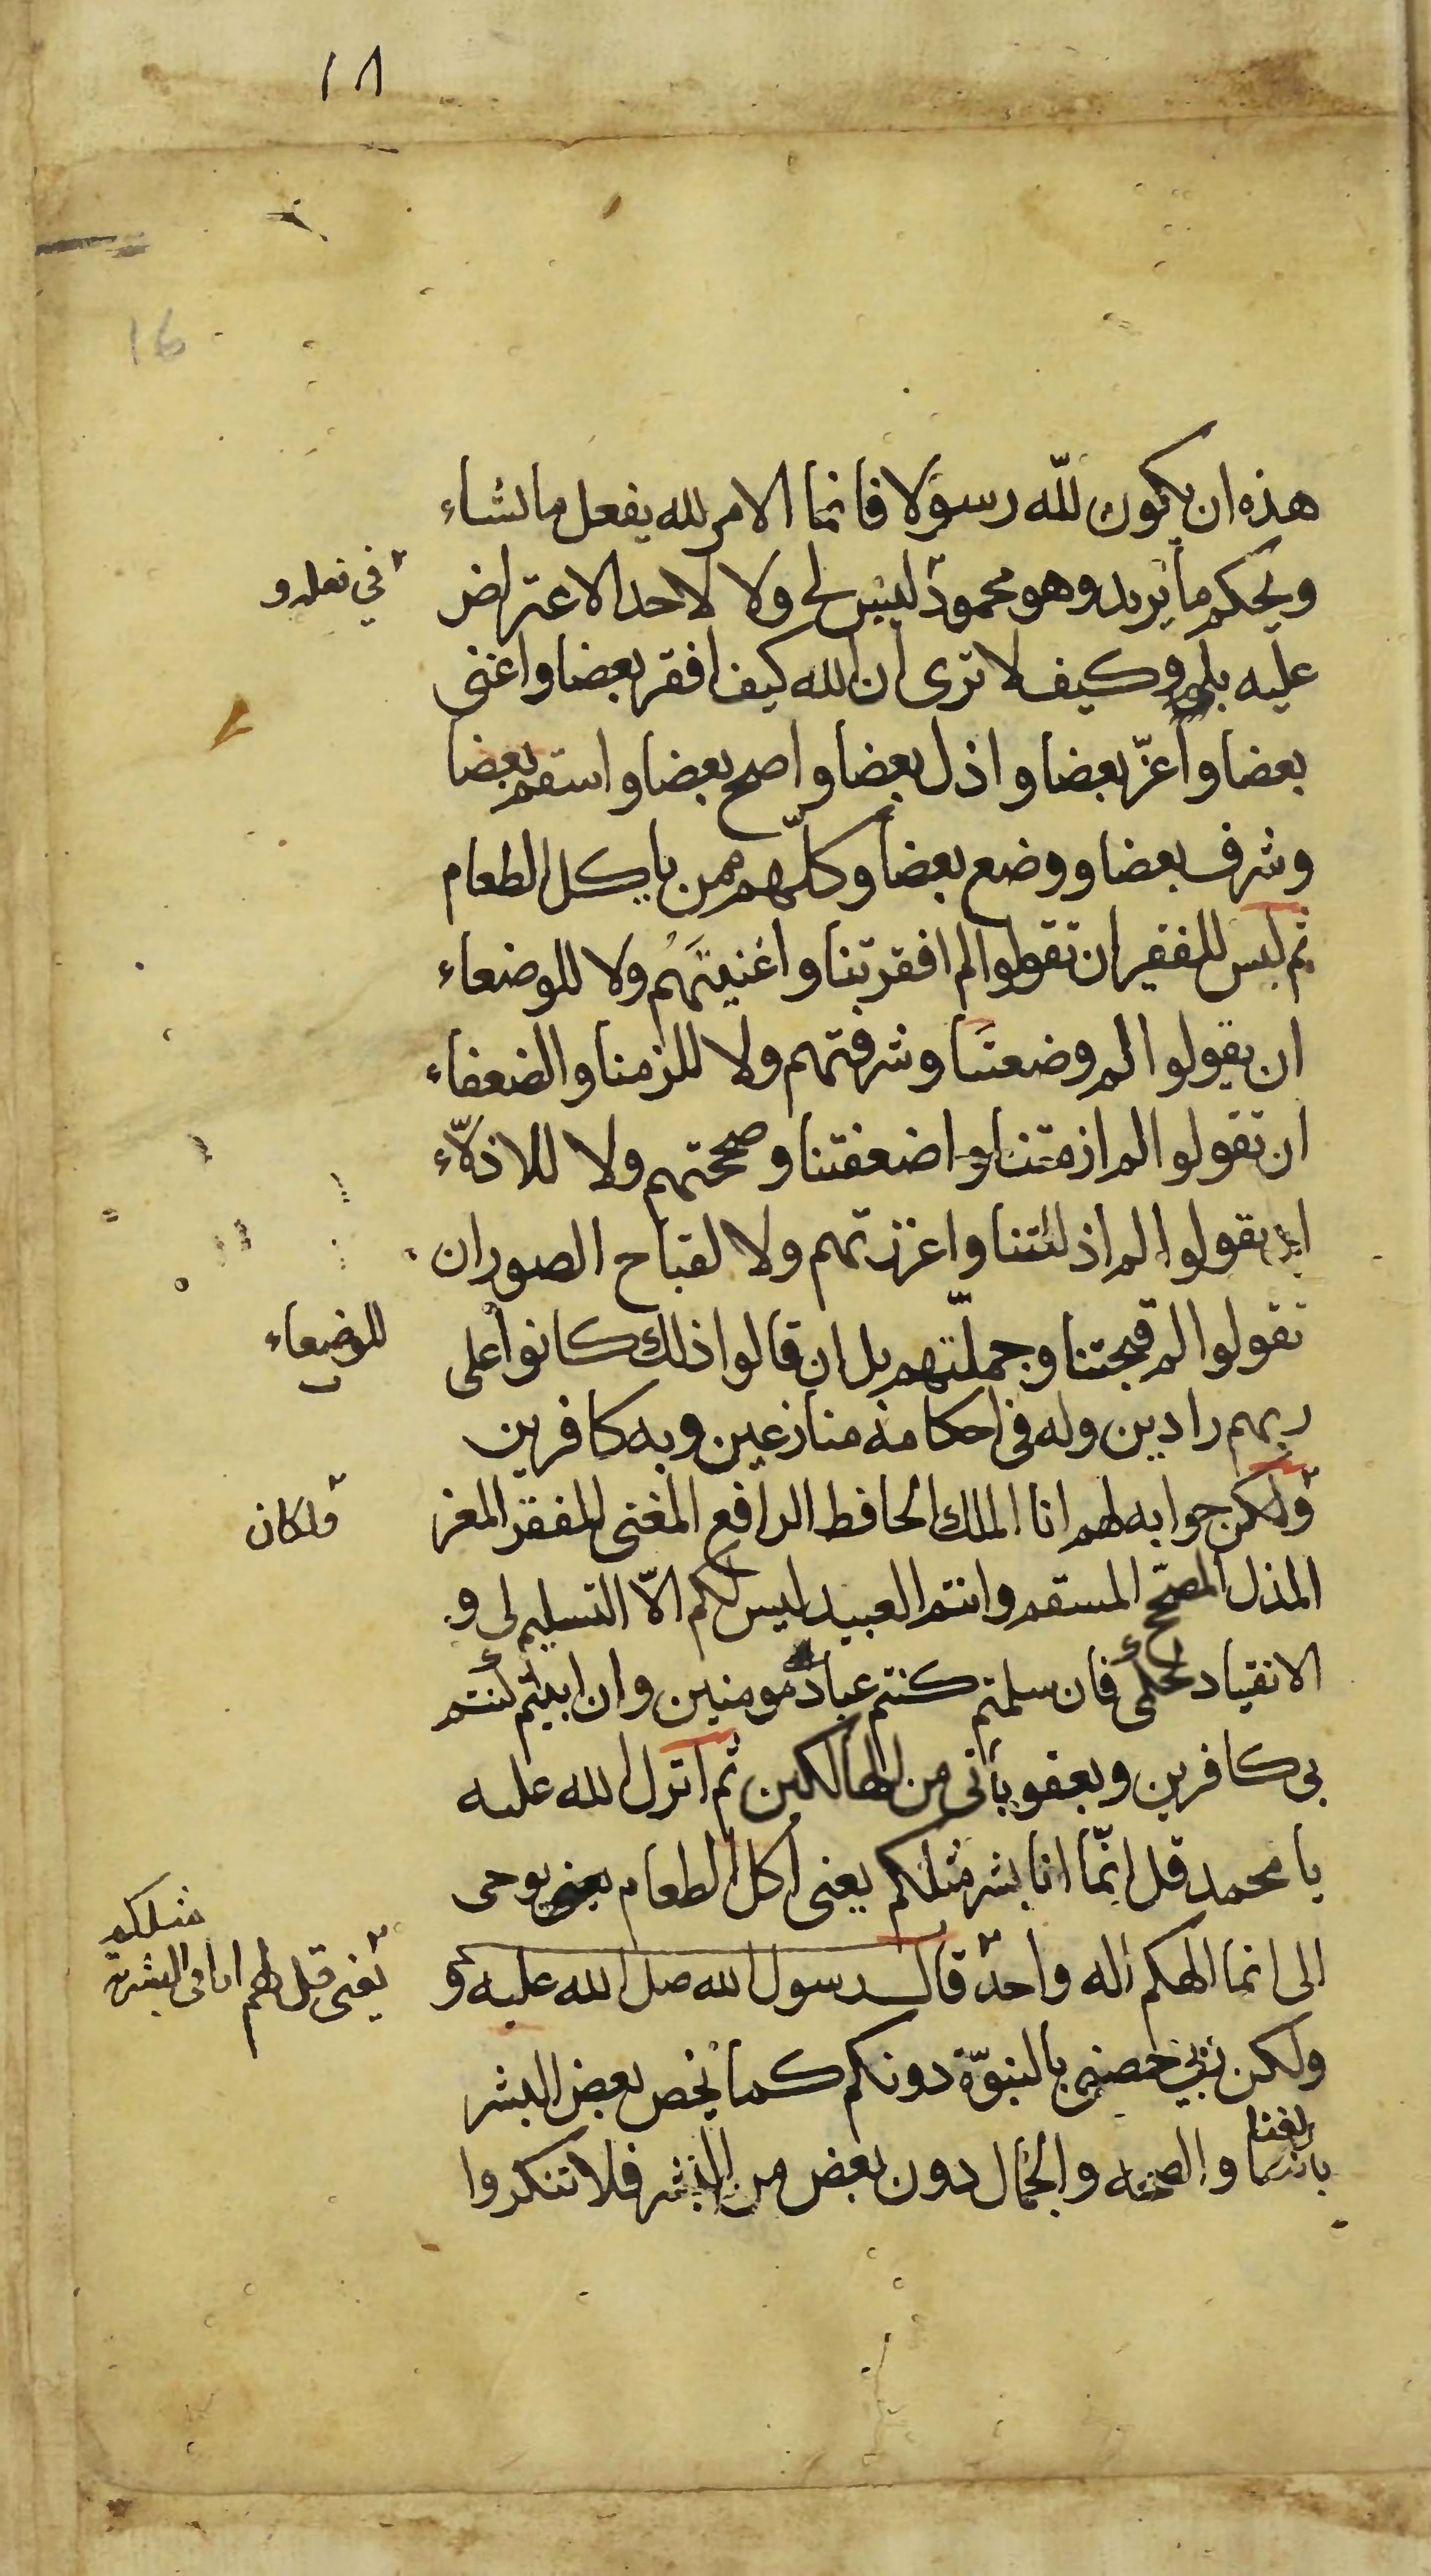 ١٨
16
هذه ان يكون لله رسولا فانما الامر لله يفعل ما يشاء
ويحكم ما يريد وهو محمود ليس لى ولا لاحد الاعتراض
في فعله و
عليه بلم وكيف لا ترى ان الله كيف افقر بعضا واغنى
بعضا واعزّ بعضا واذل بعضا واصح بعضا واسقم بعضا
وشرف بعضا ووضع بعضا وكلّهم ممن ياكل الطعام
ثم ليس للفقير ان تقولوا لم افقرتنا واغنيتَهُم ولا للوضعاء
ان يقولوا لم وضعتَنا وشرفتهم ولا للزمنا والضعفاء
ان تقولوا لم ازمتنا واضعفتنا وصححتهم ولا للاذلّاء
ان يقولوا لم اذللتنا واعززتهم ولا لقباح الصور ان
تقولوا لم قبحتنا وجملّتهم بل ان قالوا ذلك كانوا على
للوضعاء
ربهم رادين وله فى احكامه منازعين وبه كافرين
ولكن جوابه لهم انا الملك الحافط الرافع المغنى المفقر المعز
ولكان
المذل المصحّح المسقم وانتم العبيد ليس لكم الاّ التسليم لى و
الانقياد لحكمى فان سلمتم كنتم عبادا مومنين وان ابيتم كنتم
بى كافرين وبعقوباتى من الهالكين ثم انزل الله عليه
يا محمد قل انّما انا بشر مثلكم يعنى اكل الطعام يوحى
الى انما الهكم اله واحد قال رسول الله صل الله عليه و
يعنى قل لهم انا فى البشرية
مثلكم
ولكن ربي خصنى بالنبوّة دونكم كما يخص بعض البشر
بالغنا والصحه والجمال دون بعض من البشر فلا تنكروا